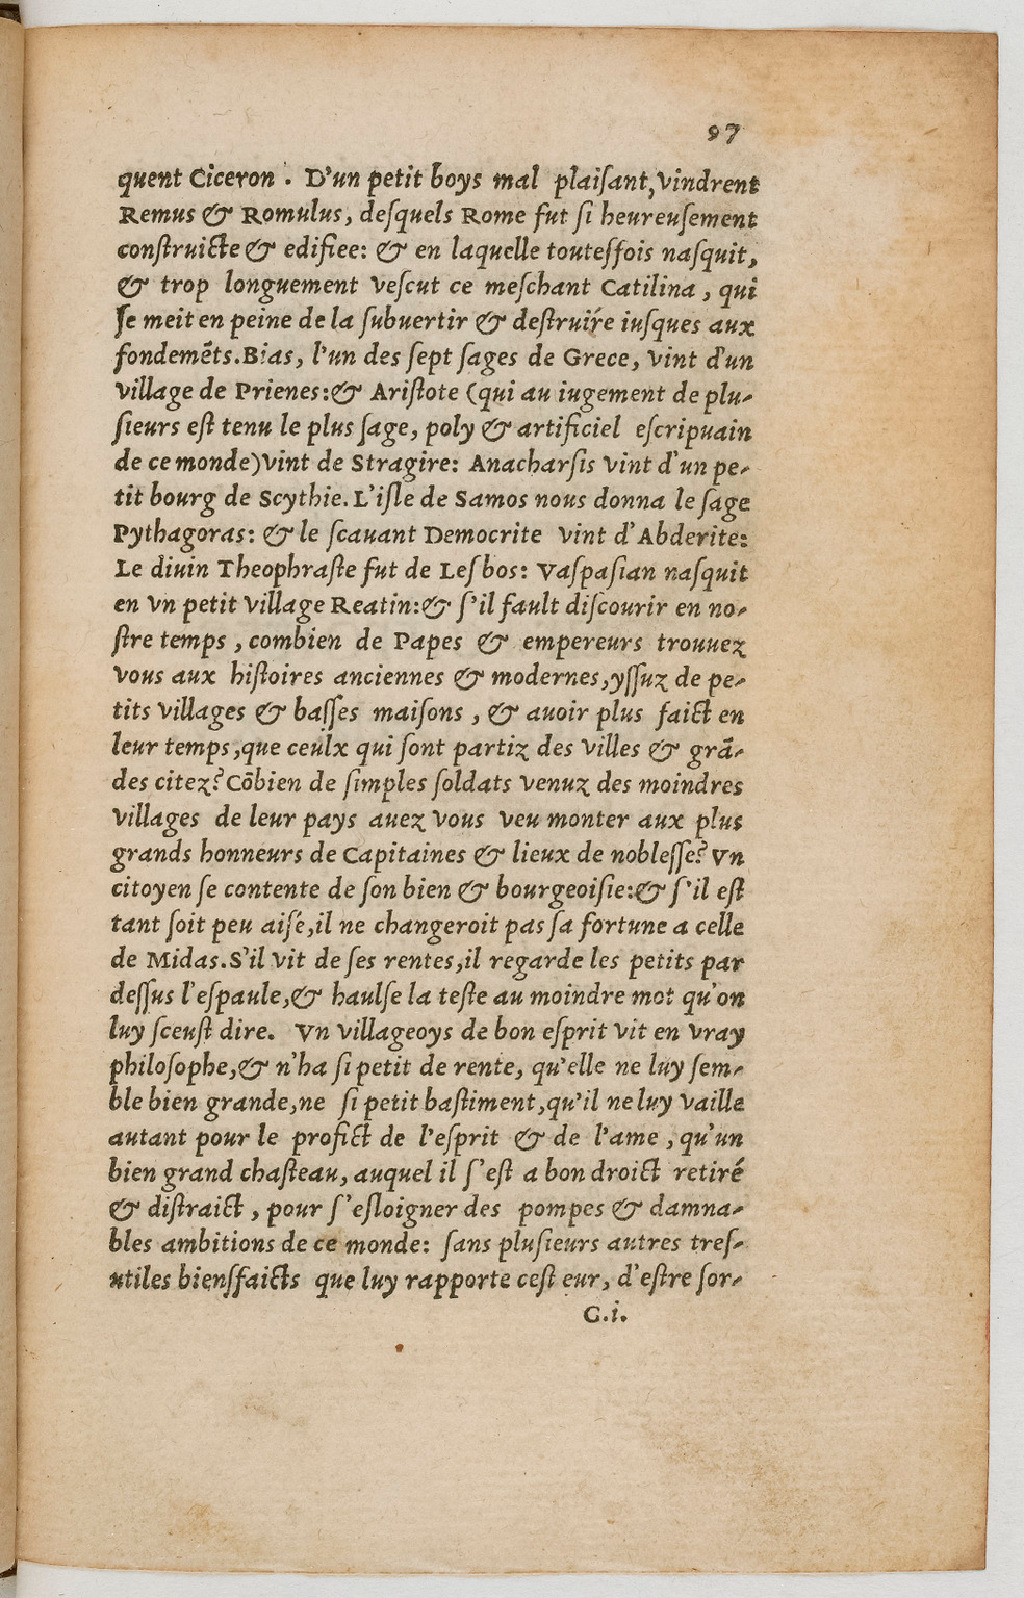 97
quent Ciceron . D'un petit boys mal plaiſant, vindrent
Remus & Romulus, deſquels Rome fut ſi heureuſement
conſtruicte & edifiee: & en laquelle touteſfois naſquit,
& trop longuement veſcut ce meſchant Catilina, qui
ſe meit en peine de la ſubuertir & deſtruire iuſques aux
fondemẽts. Bias, l'un des ſept ſages de Grece, vint d'un
village de Prienes: & Ariſtote (qui au iugement de plu-
ſieurs eſt tenu le plus ſage, poly & artificiel eſcripuain
de ce monde) vint de Stragire: Anacharſis vint d'un pe-
tit bourg de Scythie. L'iſle de Samos nous donna le ſage
Pythagoras: & le ſcauant Democrite vint d'Abderite:
Le diuin Theophraſte fut de Leſbos: Vaſpaſian naſquit
en vn petit village Reatin: & ſ'il fault diſcourir en no-
ſtre temps, combien de Papes & empereurs trouuez
vous aux hiſtoires anciennes & modernes, yſſuz de pe-
tits villages & baſſes maiſons, & auoir plus faict en
leur temps, que ceulx qui ſont partiz des villes & grã-
des citez? Cõbien de ſimples ſoldats venuz des moindres
villages de leur pays auez vous veu monter aux plus
grands honneurs de Capitaines & lieux de nobleſſe? Vn
citoyen ſe contente de ſon bien & bourgeoiſie: & ſ'il eſt
tant ſoit peu aiſé, il ne changeroit pas ſa fortune a celle
de Midas. S'il vit de ſes rentes, il regarde les petits par
deſſus l'eſpaule, & haulſe la teſte au moindre mot qu'on
luy ſceuſt dire. Vn villageoys de bon eſprit vit en vray
philoſophe, & n'ha ſi petit de rente, qu'elle ne luy ſem-
ble bien grande, ne ſi petit baſtiment, qu'il ne luy vaille
autant pour le profict de l'eſprit & de l'ame, qu'un
bien grand chaſteau, auquel il ſ'eſt a bon droict retiré
& diſtraict, pour ſ'eſloigner des pompes & damna-
bles ambitions de ce monde: ſans pluſieurs autres treſ-
utiles bienſfaicts que luy rapporte ceſt eur, d'eſtre ſor-
G.i.